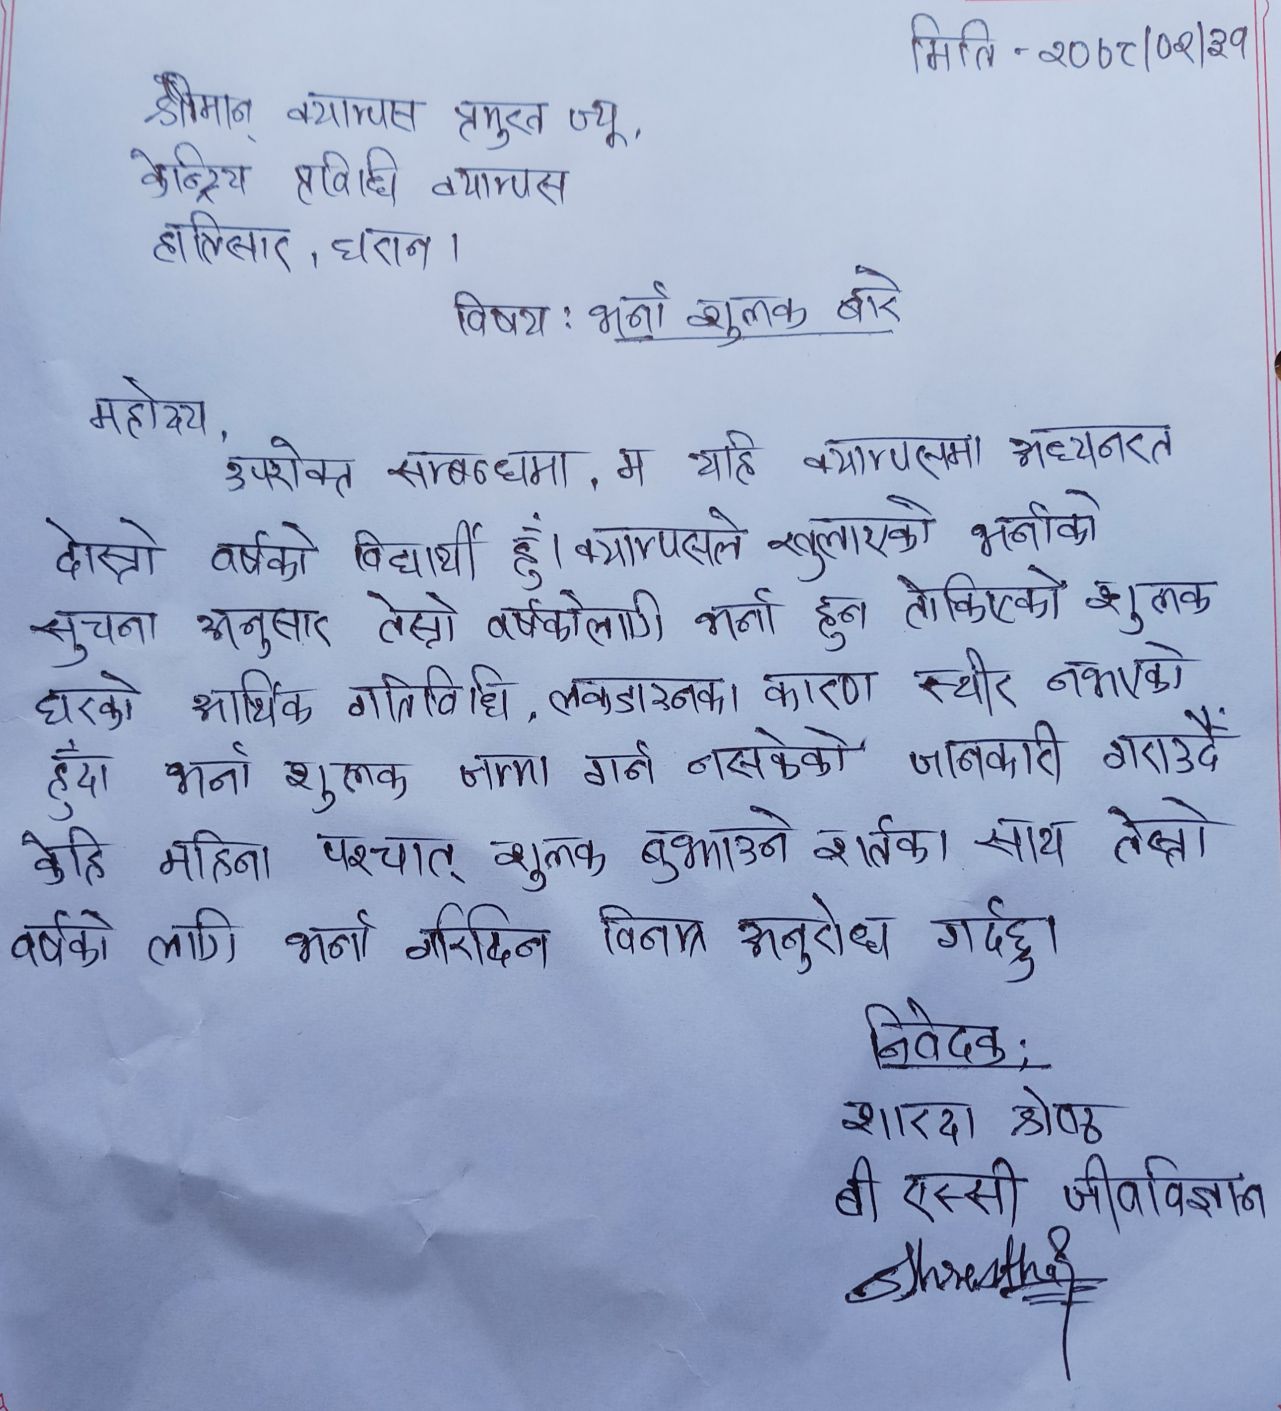 मिति - २०७८/०२/३१
श्रीमान् क्याम्पस प्रमुख ज्यू,
केन्द्रिय प्रविधि क्याम्पस
हात्तिसार, धरान।
विषय: भर्ना शुल्क बारे
महोदय,
उपरोक्त सम्बन्धमा, म यहि क्याम्पसमा अध्यनरत
दोस्रो वर्षको विद्यार्थी हुँ। क्याम्पसले खुलाएको भर्नाको
सुचना अनुसार तेस्रो वर्षकोलागि भर्ना हुन तोकिएको शुल्क
घरको आर्थिक गतिविधि, लकडाउनका कारण स्थीर नभएको
हुँदा भर्ना शुल्क जम्मा गर्न नसकेको जानकारी गराउदैं
केहि महिना पश्चात् शुल्क बुझाउने शर्तका साथ तेस्रो
वर्षको लागि भर्ना गरिदिन विनम्र अनुरोध गर्दछु।
निवेदक:
शारदा श्रेष्ठ
बी एस्सी जीवविज्ञान
Shrestha